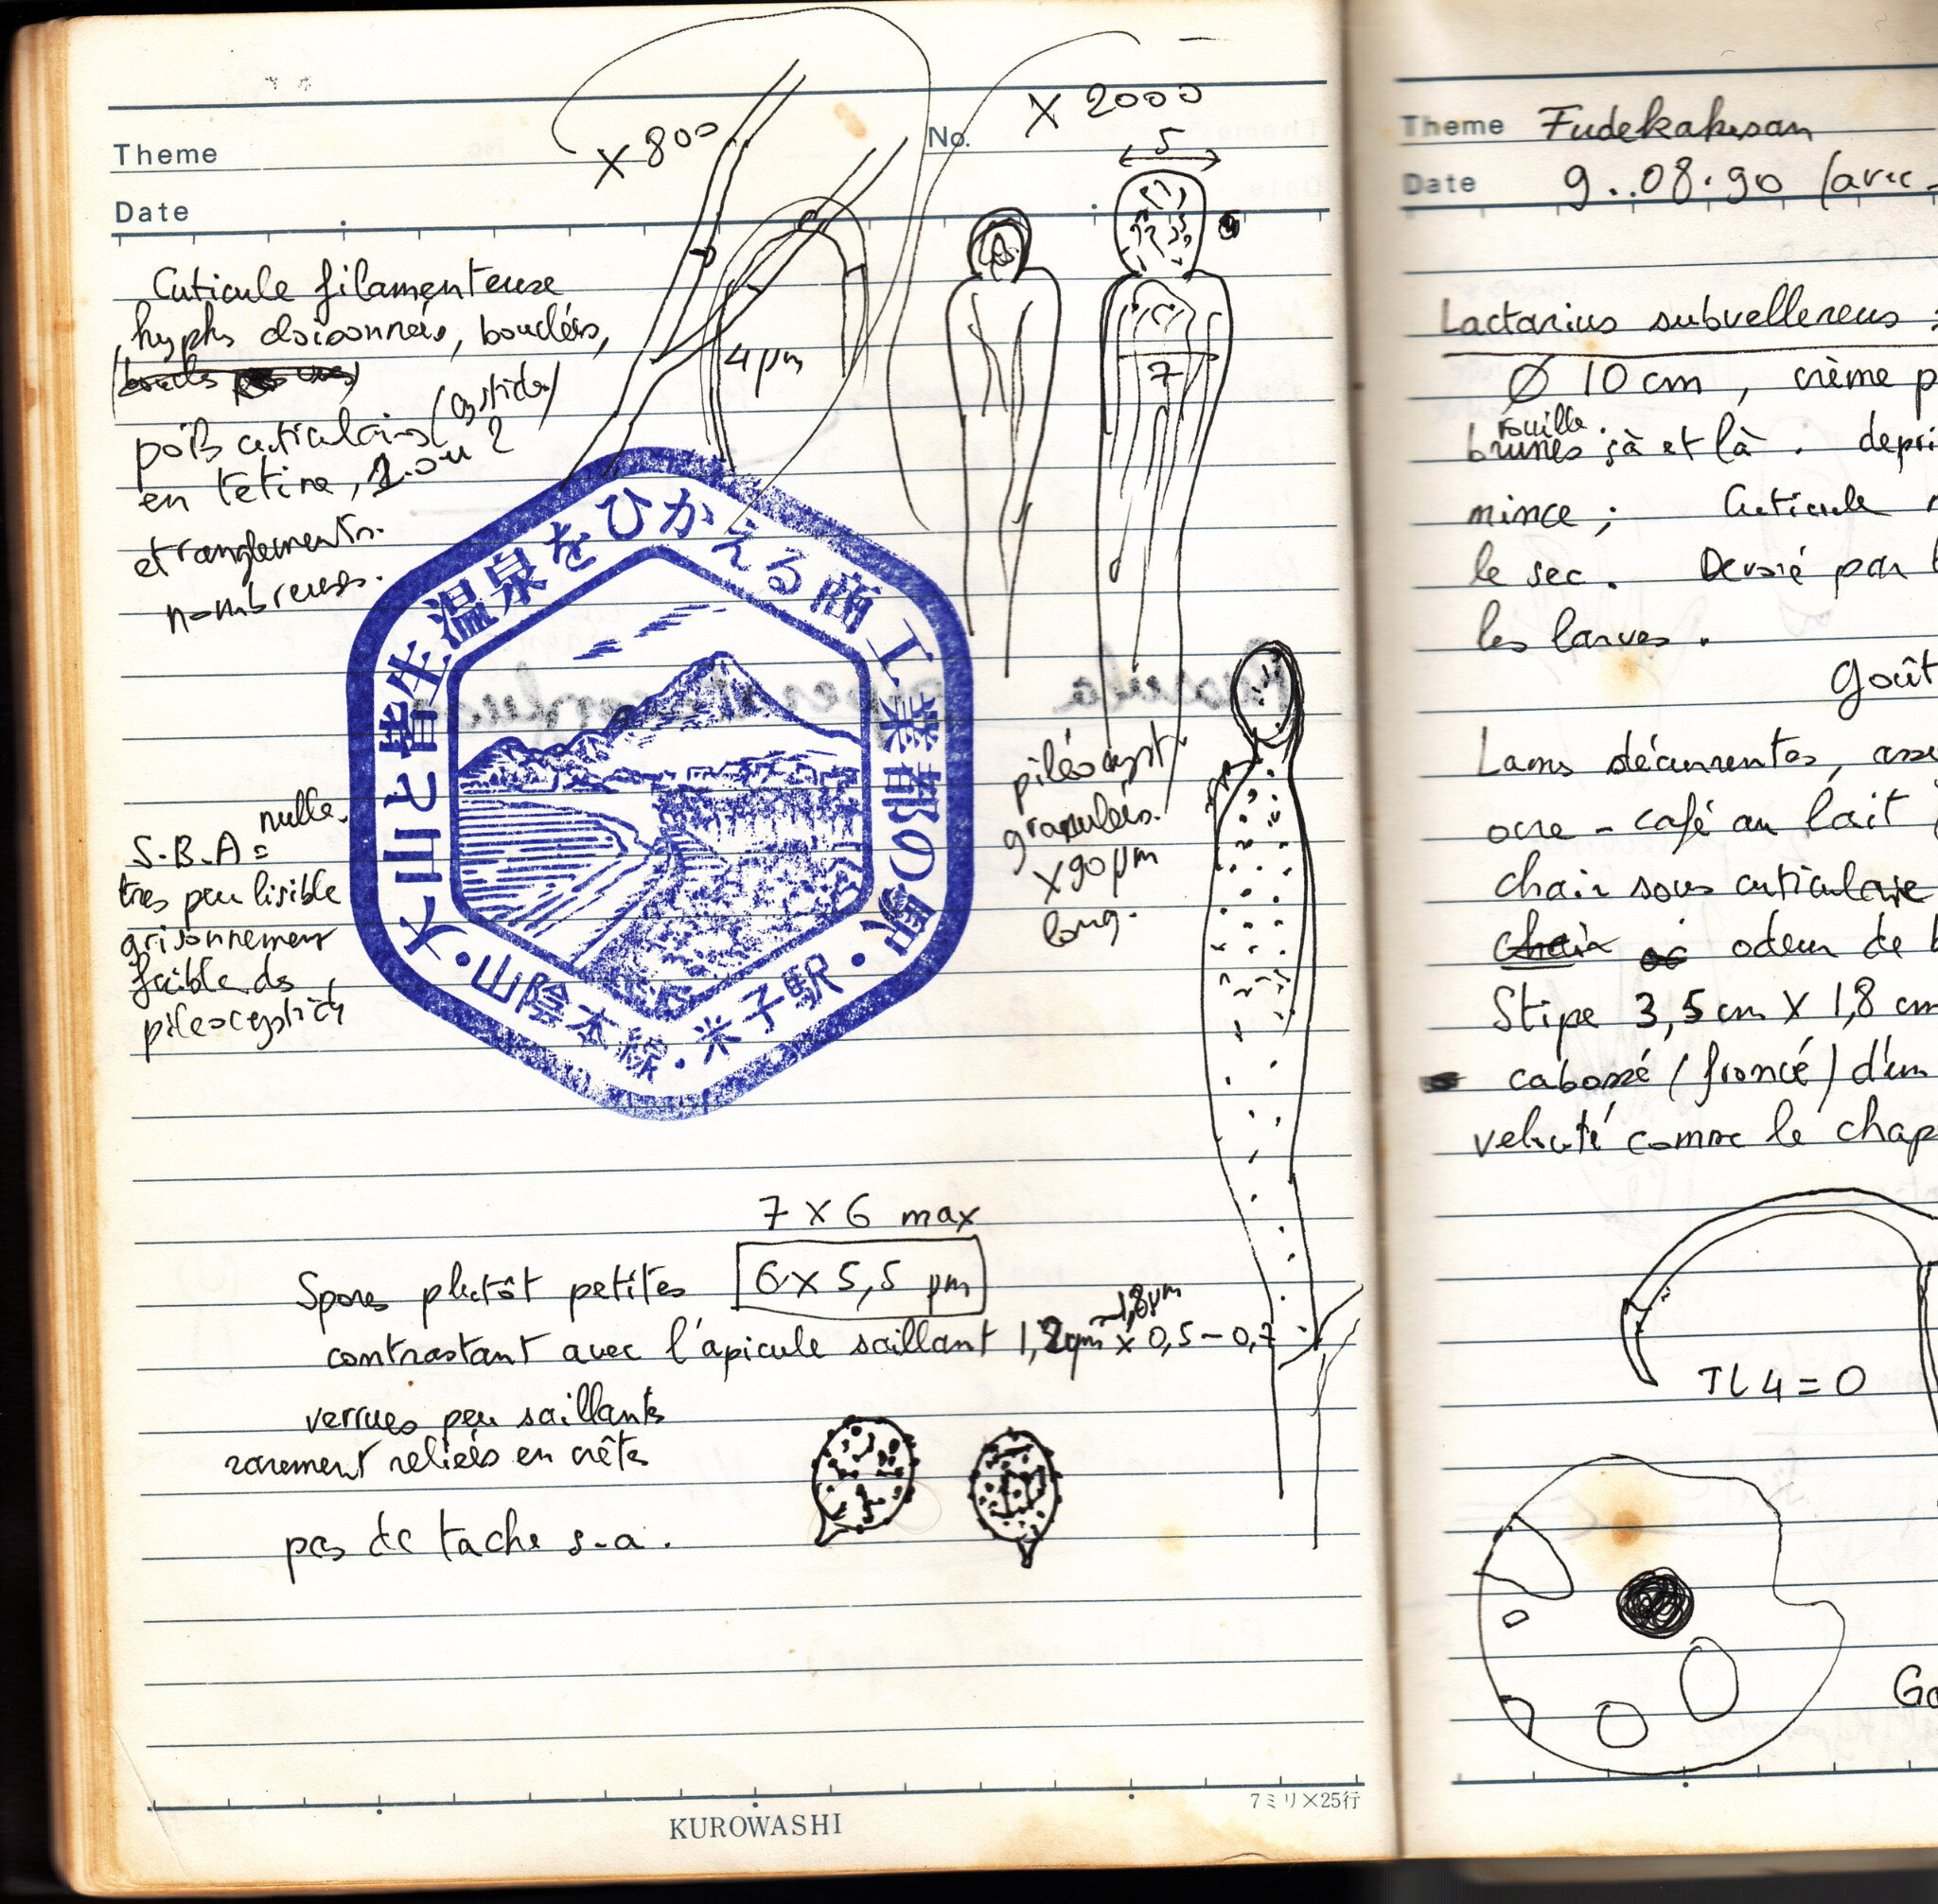 Theme
No.
Date
X 800
X 2000
5
Cuticule filamenteuse
hyphes cloisonnées, bouclées,
boucles
poils cuticulaires (cystides)
en tétine, 1 ou 2
etranglements.
nombreuses.
4 µm
7
大山と皆生温泉をひかえる商工業都の駅
・山陰本線・米子駅・
piléocyst
granulées.
X 90 µm
long.
nulle.
S.B.A =
très peu lisible
grisonnement
faible des
pileocystides
7 X 6 max
Spores plutôt petites 6 x 5,5 µm
contrastant avec l'apicule saillant 1,2µm ~1,8µm x 0,5 - 0,7
verrues peu saillantes
rarement reliées en crête
pas de tache s-a.
KUROWASHI
7ミリ×25行
Theme Fudekakesan
Date 9..08.90 (avec
Lactarius subvellereus
Ø 10 cm, crème p
rouille
brunes çà et là. depri
mince ; Cuticule
le sec. Devoré par
les larves.
Goût
Lames décurrentes, asse
ocre - café au lait
chair sous cuticulaire
chair odeur de
Stipe 3,5 cm X 1,8 cm
cabossé (froncé) d'un
velouté comme le chap
TL4 = 0
Go